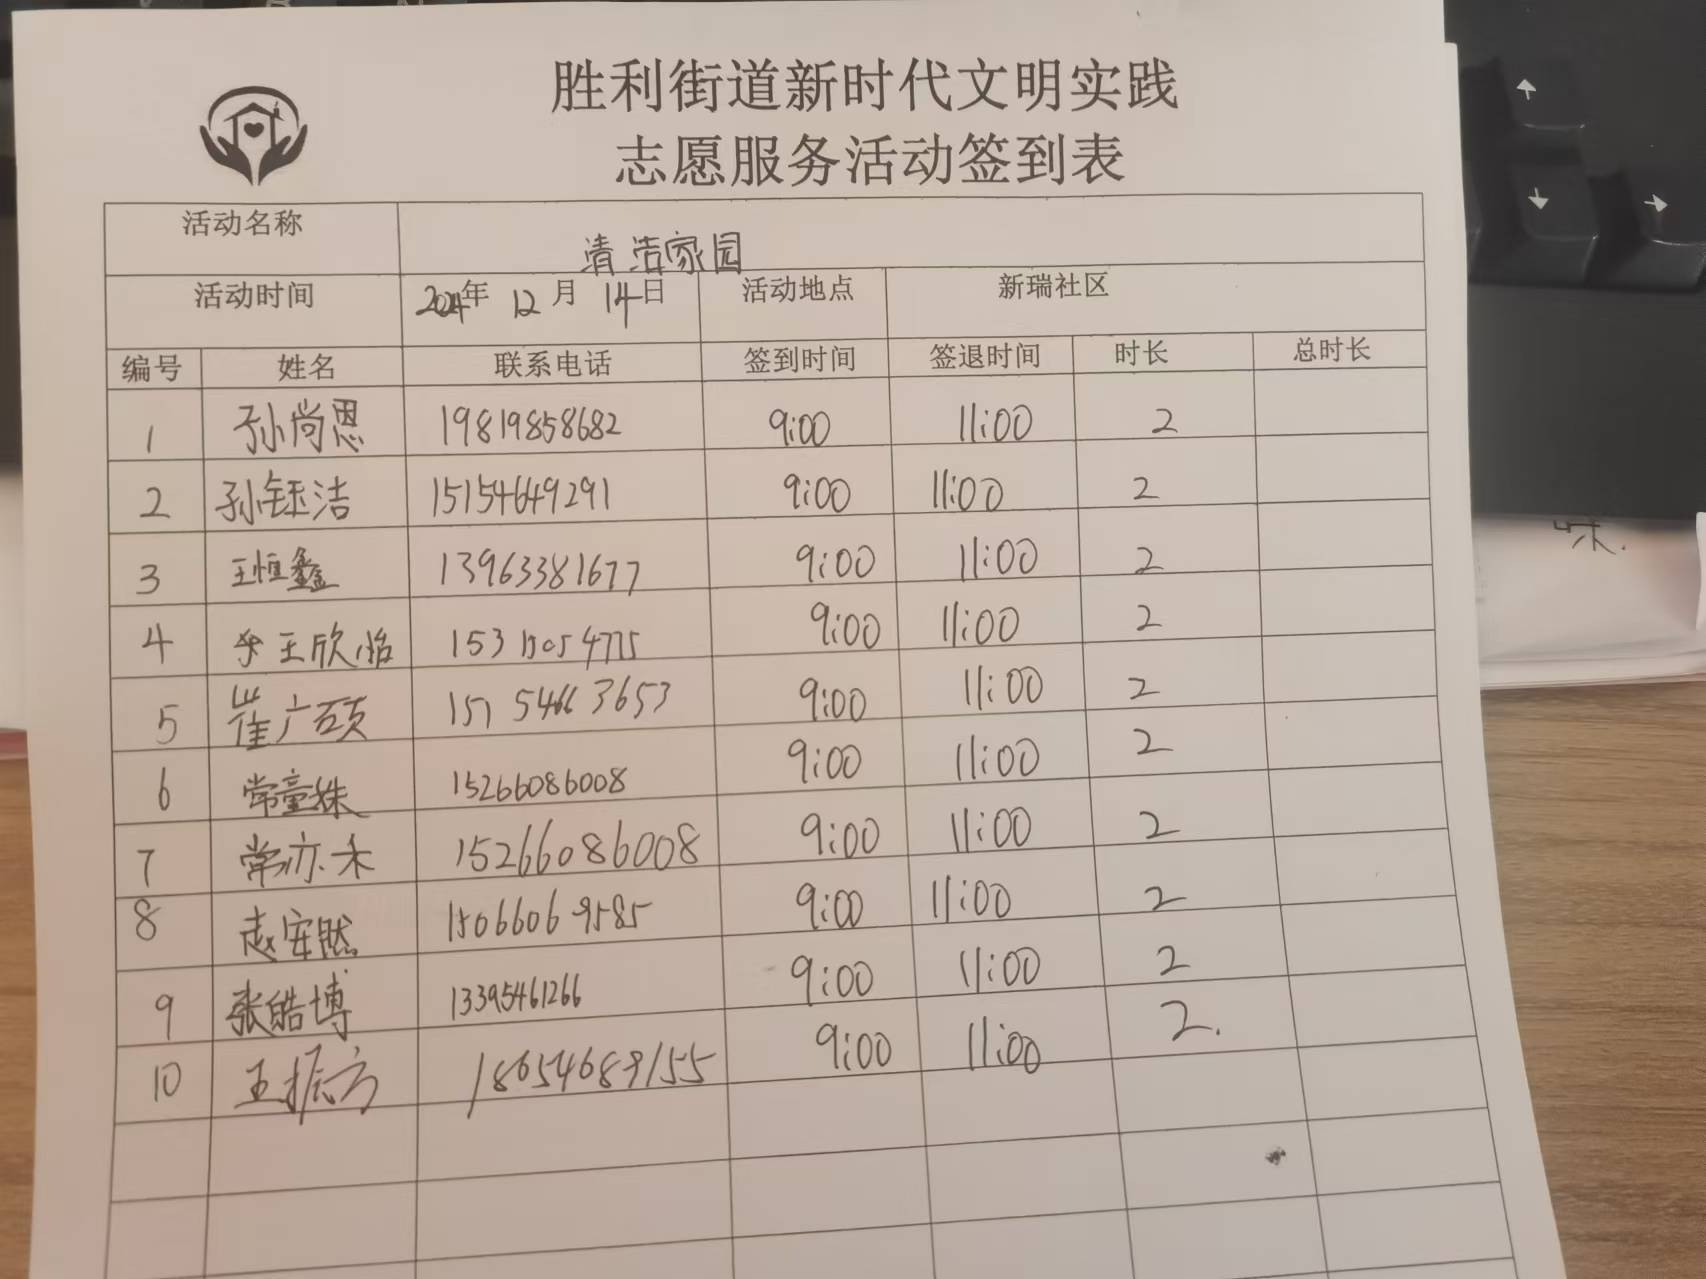 胜利街道新时代文明实践
志愿服务活动签到表
活动名称 清洁家园
活动时间 2024年 12月 14日 活动地点 新瑞社区
编号 姓名 联系电话 签到时间 签退时间 时长 总时长
1 孙尚恩 19819858682 9:00 11:00 2
2 孙钰洁 15154649291 9:00 11:00 2
3 王恒鑫 13963381677 9:00 11:00 2
4 王欣怡 9:00 11:00 2
5 崔广硕 9:00 11:00 2
6 常童姝 15266086008 9:00 11:00 2
7 常亦禾 15266086008 9:00 11:00 2
8 赵安然 15066069585 9:00 11:00 2
9 张皓博 13395461266 9:00 11:00 2
10 王振方 18654689155 9:00 11:00 2.